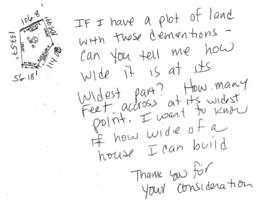 106.8'
133.57'
56.18'
114.
IF I have a plot of land
with those dementions -
can you tell me how
wide it is at its
widest part? How many
Feet accross at its widest
point. I want to know
if how wide of a
house I can build
Thank you for
your consideration